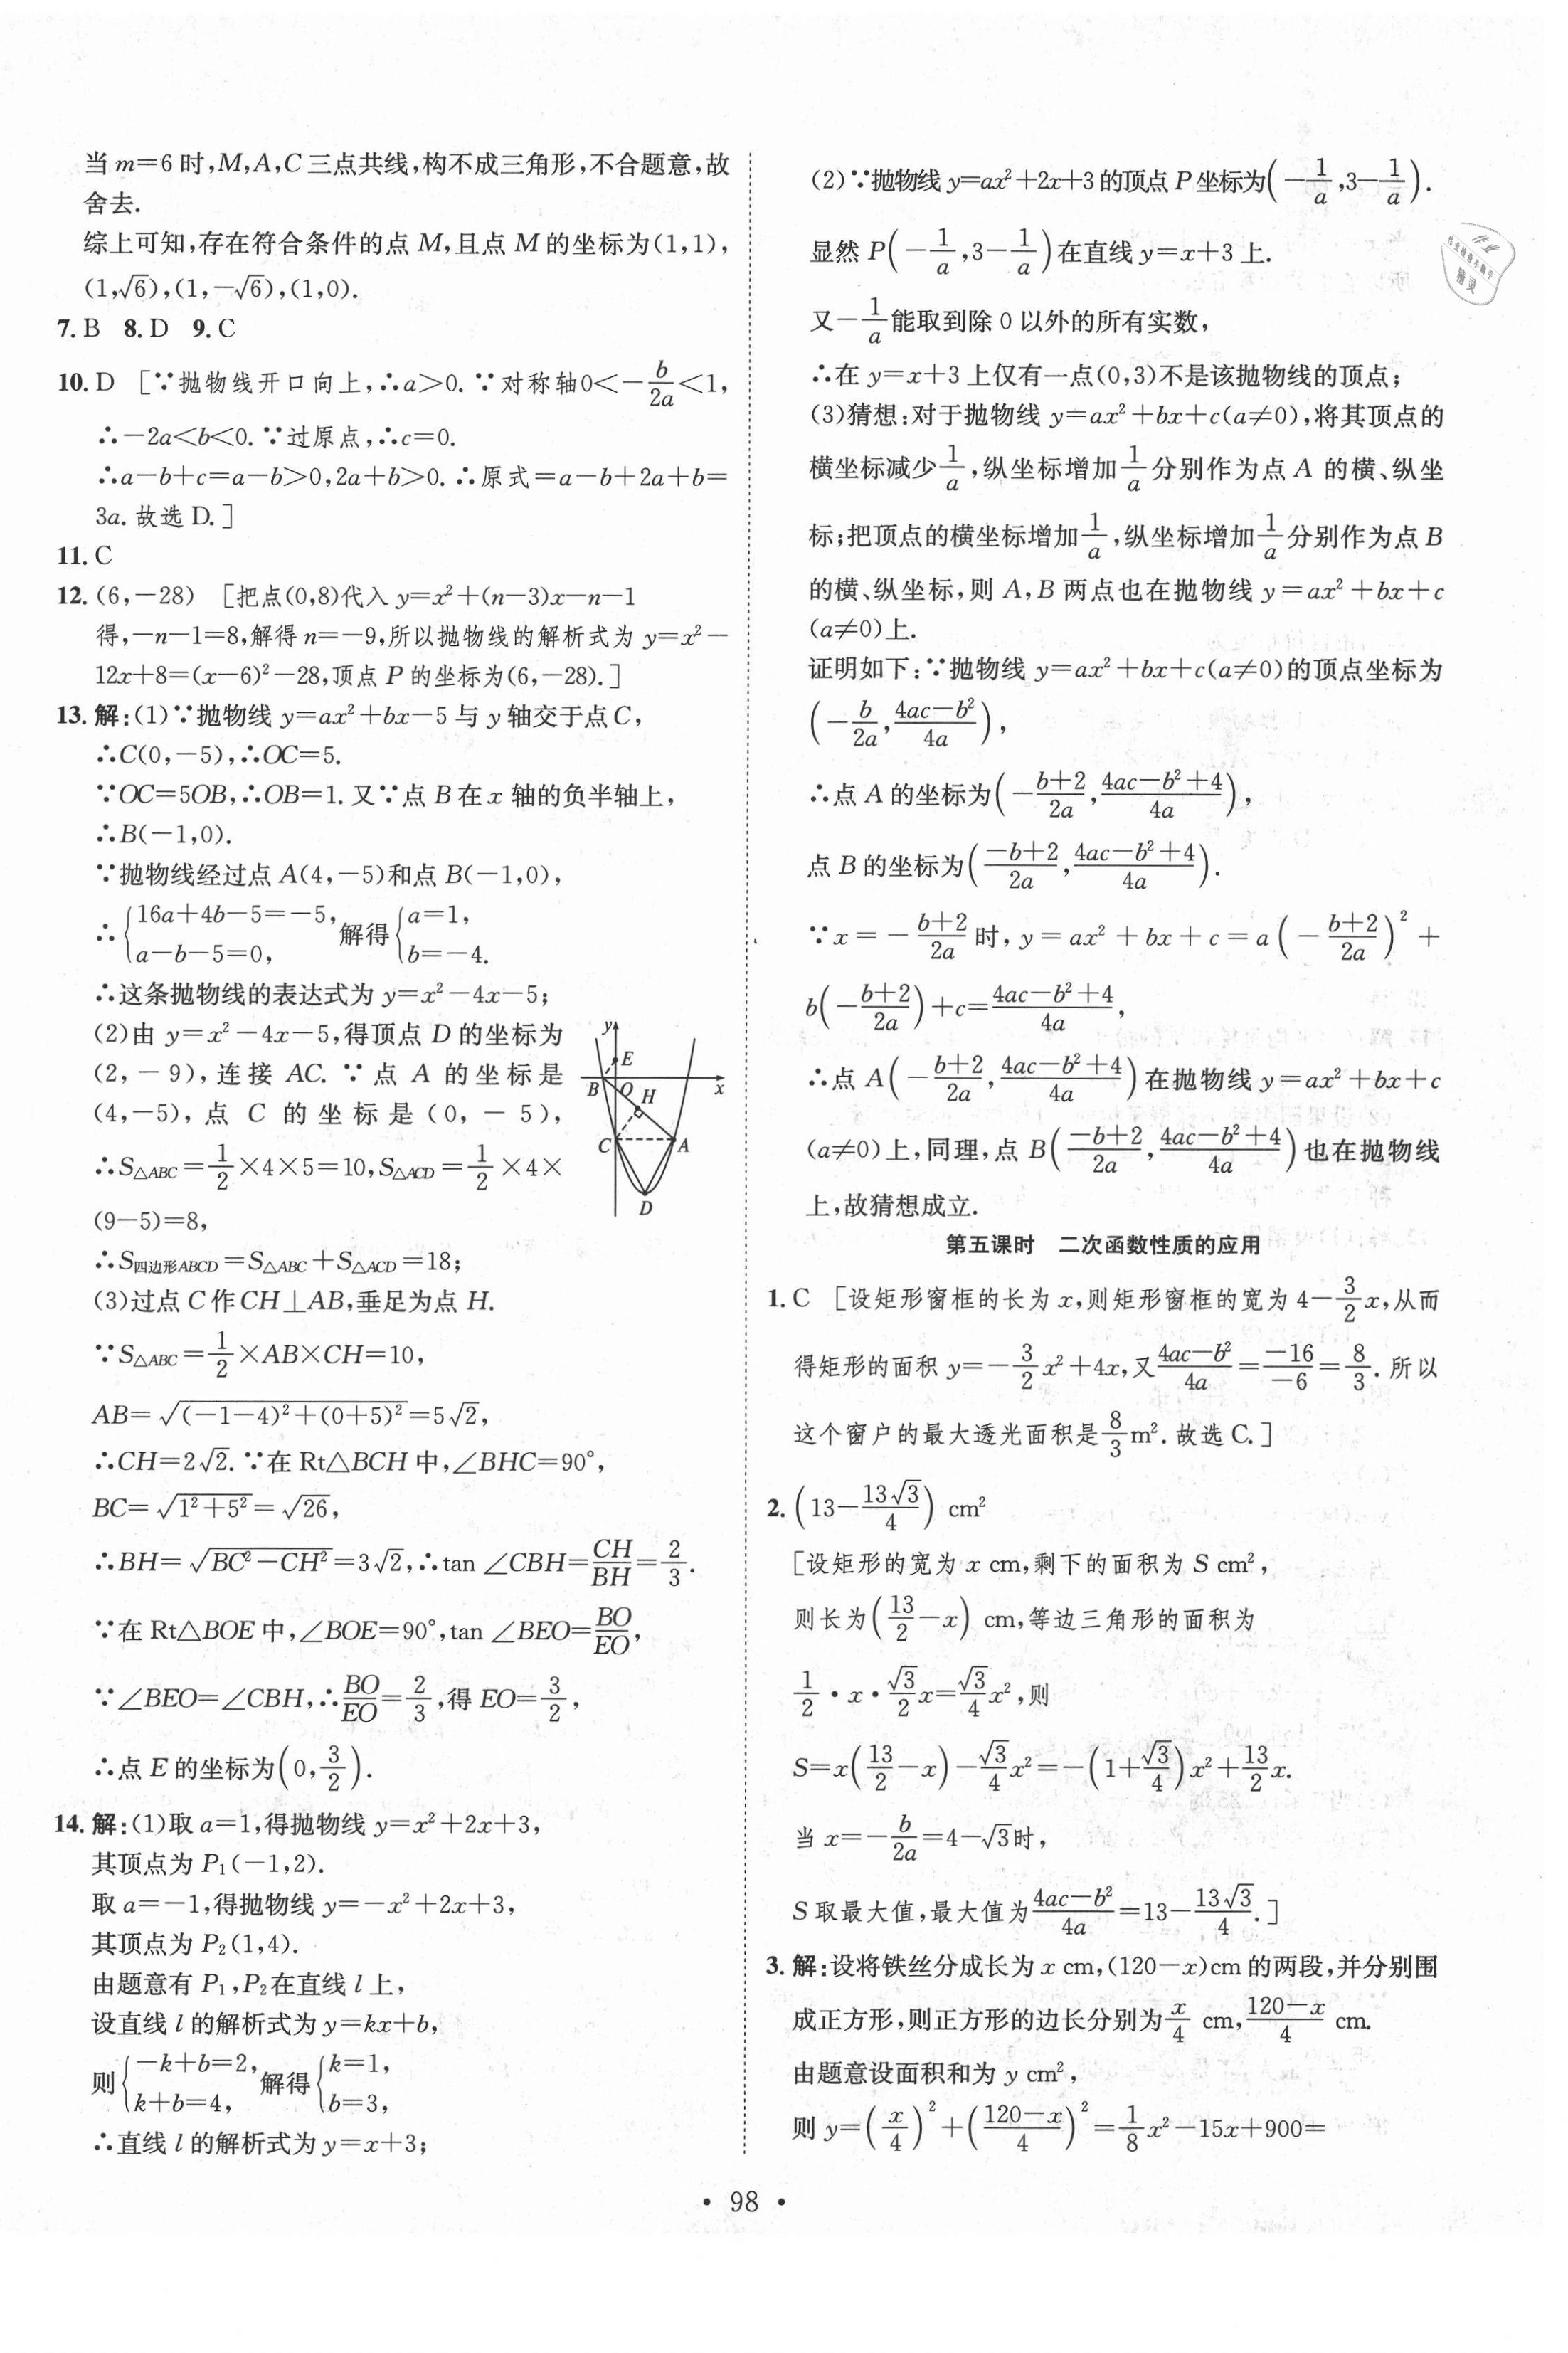 当 m=6 时,M,A,C 三点共线,构不成三角形,不合题意,故
舍去.
综上可知,存在符合条件的点 M,且点 M 的坐标为(1,1),
(1,√6),(1,-√6),(1,0).
7. B 8. D 9. C
10. D [∵抛物线开口向上,∴a>0.∵对称轴0<-b/2a<1,
∴-2a<b<0.∵过原点,∴c=0.
∴a-b+c=a-b>0,2a+b>0.∴原式=a-b+2a+b=
3a.故选 D.]
11. C
12. (6,-28) [把点(0,8)代入 y=x²+(n-3)x-n-1
得,-n-1=8,解得 n=-9,所以抛物线的解析式为 y=x²-
12x+8=(x-6)²-28,顶点 P 的坐标为(6,-28).]
13. 解:(1)∵抛物线 y=ax²+bx-5 与 y 轴交于点C,
∴C(0,-5),∴OC=5.
∵OC=5OB,∴OB=1.又∵点 B 在 x 轴的负半轴上,
∴B(-1,0).
∵抛物线经过点 A(4,-5)和点 B(-1,0),
∴{16a+4b-5=-5, a-b-5=0, 解得{a=1, b=-4.
∴这条抛物线的表达式为 y=x²-4x-5;
(2)由 y=x²-4x-5,得顶点 D 的坐标为
(2,-9),连接 AC.∵点 A 的坐标是
(4,-5),点 C 的坐标是(0,-5),
∴S△ABC=1/2×4×5=10,S△ACD=1/2×4×
(9-5)=8,
y E B O H x C A D
∴S四边形ABCD=S△ABC+S△ACD=18;
(3)过点 C 作CH⊥AB,垂足为点 H.
∵S△ABC=1/2×AB×CH=10,
AB=√((-1-4)²+(0+5)²)=5√2,
∴CH=2√2.∵在 Rt△BCH 中,∠BHC=90°,
BC=√(1²+5²)=√26,
∴BH=√(BC²-CH²)=3√2,∴tan ∠CBH=CH/BH=2/3.
∵在 Rt△BOE 中,∠BOE=90°,tan ∠BEO=BO/EO,
∵∠BEO=∠CBH,∴BO/EO=2/3,得 EO=3/2,
∴点 E 的坐标为(0,3/2).
14. 解:(1)取 a=1,得抛物线 y=x²+2x+3,
其顶点为 P₁(-1,2).
取 a=-1,得抛物线 y=-x²+2x+3,
其顶点为 P₂(1,4).
由题意有 P₁,P₂在直线 l 上,
设直线 l 的解析式为 y=kx+b,
则{-k+b=2, k+b=4, 解得{k=1, b=3,
∴直线 l 的解析式为 y=x+3;
(2)∵抛物线 y=ax²+2x+3 的顶点 P 坐标为(-1/a,3-1/a).
显然 P(-1/a,3-1/a)在直线 y=x+3 上.
又-1/a能取到除 0 以外的所有实数,
∴在 y=x+3 上仅有一点(0,3)不是该抛物线的顶点;
(3)猜想:对于抛物线 y=ax²+bx+c(a≠0),将其顶点的
横坐标减少1/a,纵坐标增加1/a分别作为点 A 的横、纵坐
标;把顶点的横坐标增加1/a,纵坐标增加1/a分别作为点 B
的横、纵坐标,则 A,B 两点也在抛物线 y=ax²+bx+c
(a≠0)上.
证明如下:∵抛物线 y=ax²+bx+c(a≠0)的顶点坐标为
(-b/2a,(4ac-b²)/4a),
∴点 A 的坐标为(-(b+2)/2a,(4ac-b²+4)/4a),
点 B 的坐标为((-b+2)/2a,(4ac-b²+4)/4a).
∵x=-(b+2)/2a时,y=ax²+bx+c=a(-(b+2)/2a)²+
b(-(b+2)/2a)+c=(4ac-b²+4)/4a,
∴点 A(-(b+2)/2a,(4ac-b²+4)/4a)在抛物线 y=ax²+bx+c
(a≠0)上,同理,点 B((-b+2)/2a,(4ac-b²+4)/4a)也在抛物线
上,故猜想成立.
第五课时 二次函数性质的应用
1. C [设矩形窗框的长为 x,则矩形窗框的宽为 4-3/2x,从而
得矩形的面积 y=-3/2x²+4x,又(4ac-b²)/4a=-16/-6=8/3.所以
这个窗户的最大透光面积是8/3m².故选 C.]
2. (13-13√3/4) cm²
[设矩形的宽为 x cm,剩下的面积为 S cm²,
则长为(13/2-x) cm,等边三角形的面积为
1/2·x·√3/2x=√3/4x²,则
S=x(13/2-x)-√3/4x²=-(1+√3/4)x²+13/2x.
当 x=-b/2a=4-√3时,
S 取最大值,最大值为(4ac-b²)/4a=13-13√3/4.]
3. 解:设将铁丝分成长为 x cm,(120-x)cm 的两段,并分别围
成正方形,则正方形的边长分别为x/4 cm,(120-x)/4 cm.
由题意设面积和为 y cm²,
则 y=(x/4)²+((120-x)/4)²=1/8x²-15x+900=
• 98 •